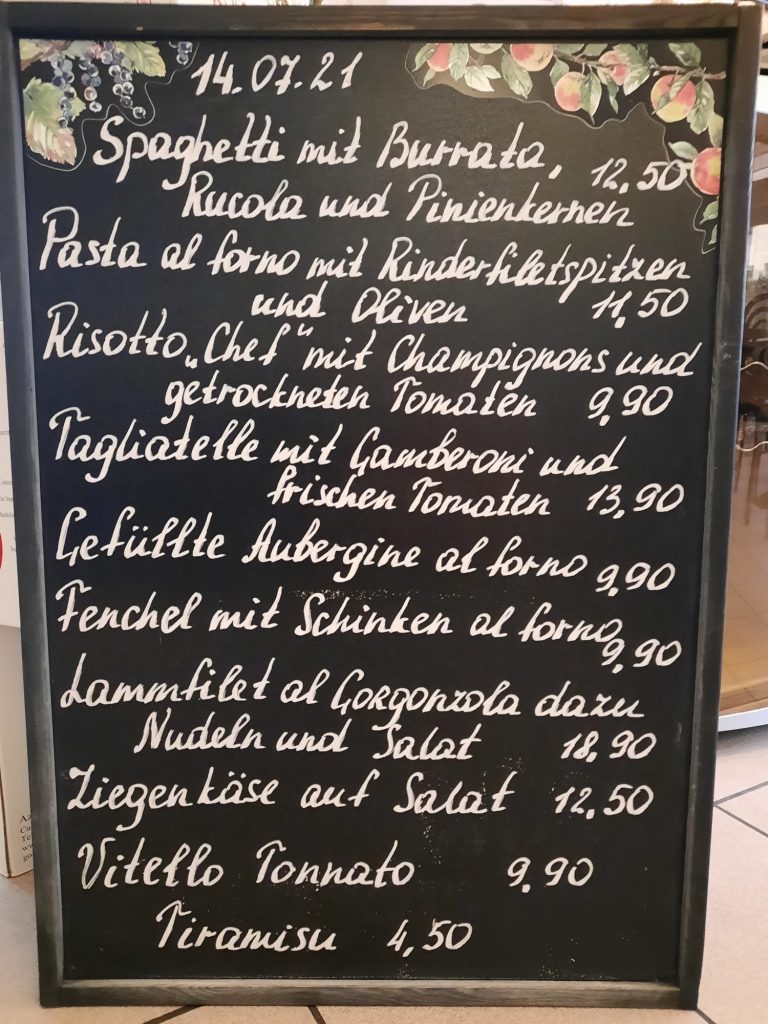 14.07.21
Spaghetti mit Burrata, 12,50
Rucola und Pinienkernen
Pasta al forno mit Rinderfiletspitzen
und Oliven 11,50
Risotto „Chef“ mit Champignons und
getrockneten Tomaten 9,90
Tagliatelle mit Gamberoni und
frischen Tomaten 13,90
Gefüllte Aubergine al forno 9,90
Fenchel mit Schinken al forno
9,90
Lammfilet al Gorgonzola dazu
Nudeln und Salat 18,90
Ziegenkäse auf Salat 12,50
Vitello Tonnato 9,90
Tiramisu 4,50